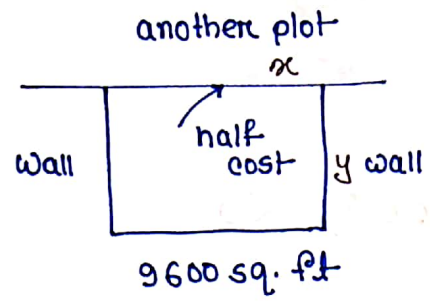 another plot
x
half
wall cost y wall
9600 sq. ft